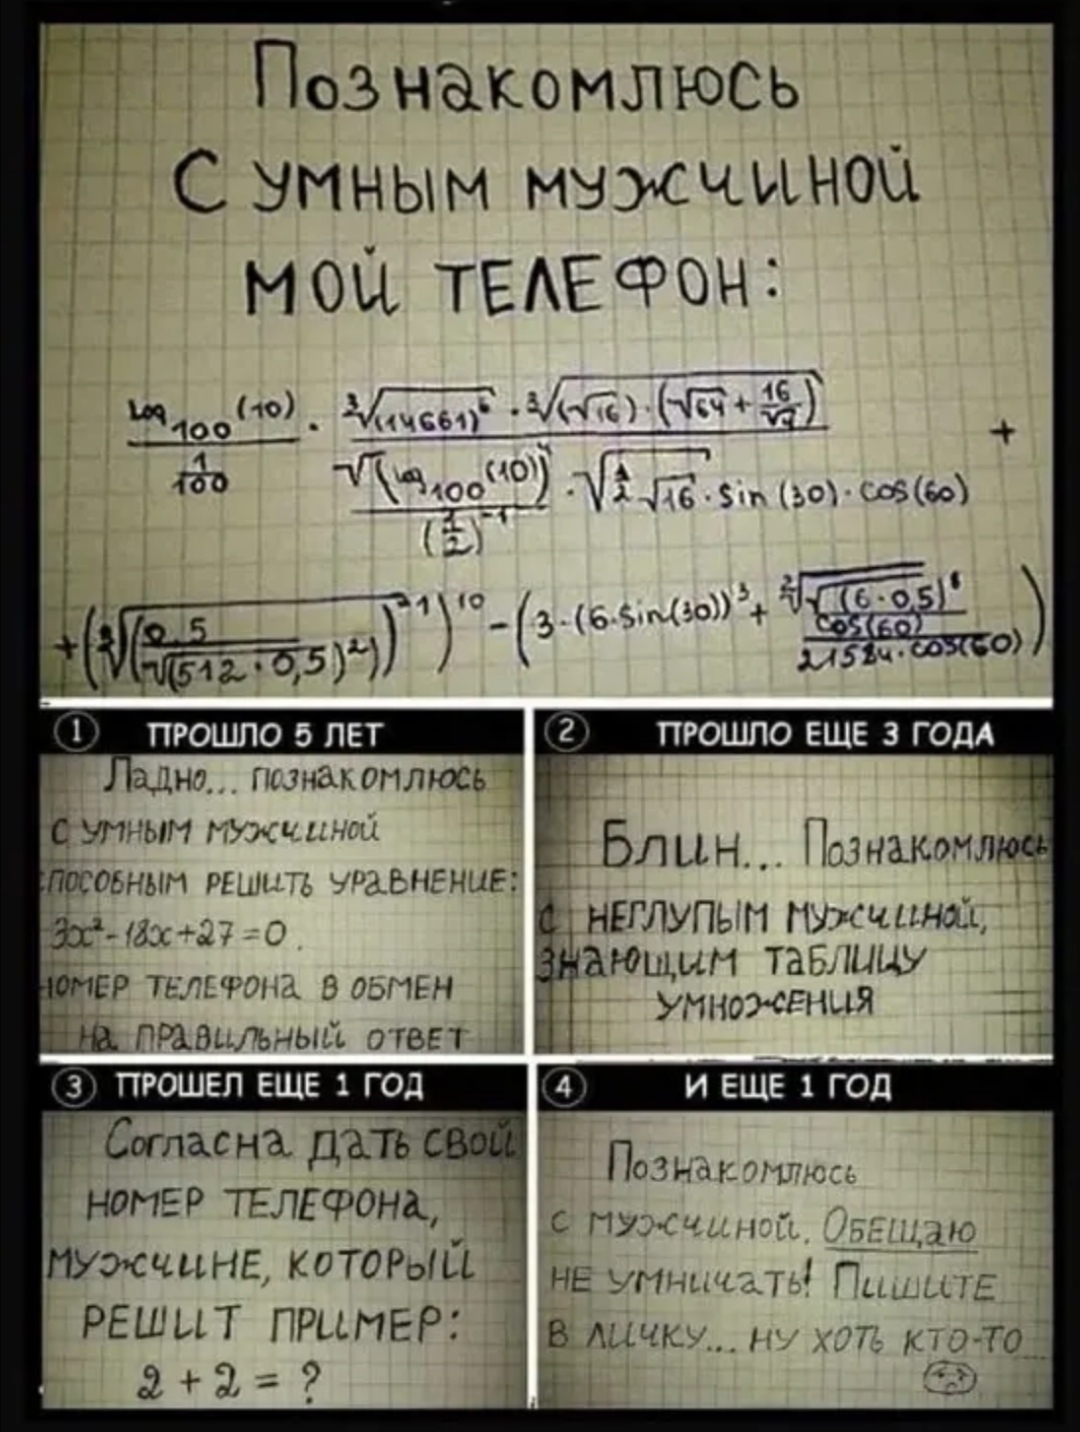 Познакомлюсь
с умным мужчиной
мой телефон:
log₁₀₀(10) / (1/100) · ∛(14661)⁶ · ∛((√16)·(√64 + 16/√4)) +
√(log₁₀₀(10)) / (1/2)⁻¹ · √(1/2 √16 · sin(30) · cos(60)
+ (∛(0,5 / √(512·0,5)²))⁻¹)¹⁰ − (3·(6·sin(30))³ +
1 ПРОШЛО 5 ЛЕТ
Ладно... познакомлюсь
с умным мужчиной
способным решить уравнение:
3x²-18x+27=0.
номер телефона в обмен
на правильный ответ
2 ПРОШЛО ЕЩЕ 3 ГОДА
Блин... Познакомлюсь
с неглупым мужчиной,
знающим таблицу
умножения
3 ПРОШЕЛ ЕЩЕ 1 ГОД
Согласна дать свой
номер телефона,
мужчине, который
решит пример:
2 + 2 = ?
4 И ЕЩЕ 1 ГОД
Познакомлюсь
с мужчиной. Обещаю
не умничать! Пишите
в личку... ну хоть кто-то